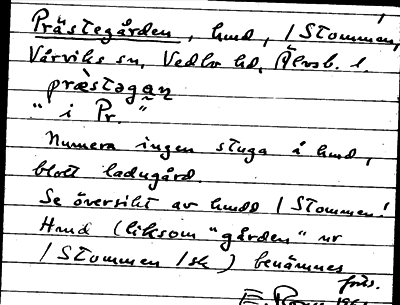 Prästegården, hmd, / Stommen,
Vårviks sn, Vedbo hd, Älvsb. l.
præ̀stəgan
"i Pr."
Numera ingen stuga å hmd,
blott ladugård.
Se översikt av hmdd / Stommen!
Hmd (liksom "gården" nr
/ Stommen /sk) benämnes
förs.